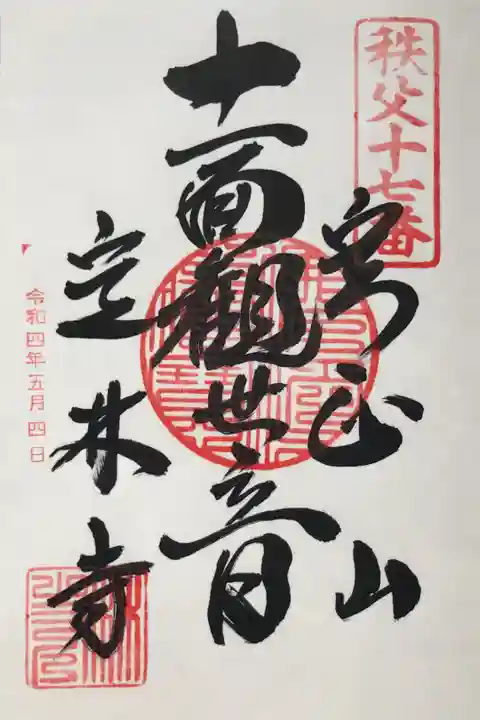 秩父十七番
実正山
十一面観世音
定林寺
令和四年五月四日